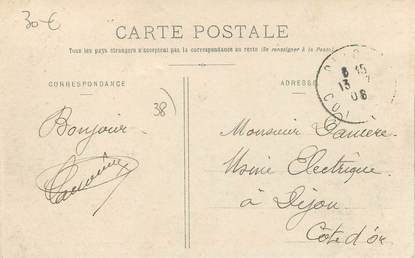 30€
CARTE POSTALE
Tous les pays étrangers n'acceptent pas la correspondance au recto (Se renseigner à la Poste).
CORRESPONDANCE
ADRESSE
8 15
13
08
38)
Bonjour
Monsieur
Usine Electrique
à Dijon
Côte d'Or